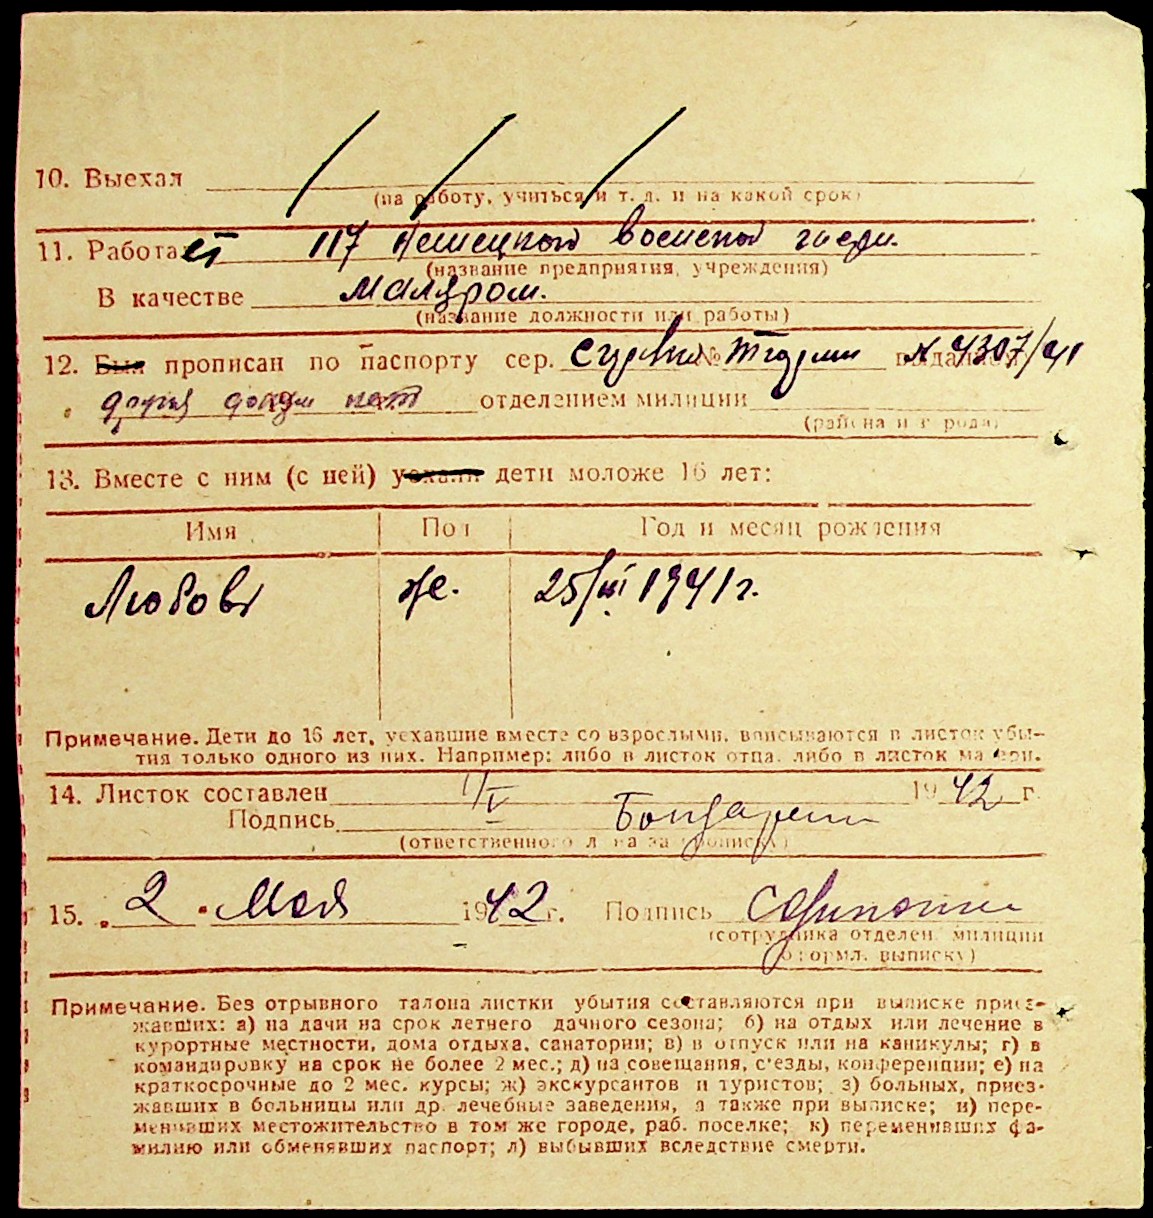 10. Выехал
(на работу, учиться и т. д. и на какой срок)
11. Работает 117 Немецкой военной
(название предприятия, учреждения)
В качестве Маляром.
(название должности или работы)
12. Был прописан по паспорту сер. № выдан № 4307/41
отделением милиции
(района и города)
13. Вместе с ним (с ней) уехали дети моложе 16 лет:
Имя Пол Год и месяц рождения
Любовь Же. 25/ 1941 г.
Примечание. Дети до 16 лет, уехавшие вместе со взрослыми, вписываются в листок убы-
тия только одного из них. Например: либо в листок отца, либо в листок матери.
14. Листок составлен 1/V 1942 г.
Подпись
(ответственного лица за прописку)
15. „2" Мая 1942 г. Подпись
(сотрудника отделен. милиции
оформл. выписку)
Примечание. Без отрывного талона листки убытия составляются при выписке приез-
жавших: а) на дачи на срок летнего дачного сезона; б) на отдых или лечение в
курортные местности, дома отдыха, санатории; в) в отпуск или на каникулы; г) в
командировку на срок не более 2 мес.; д) на совещания, с'езды, конференции; е) на
краткосрочные до 2 мес. курсы; ж) экскурсантов и туристов; з) больных, приез-
жавших в больницы или др. лечебные заведения, а также при выписке; и) пере-
менивших местожительство в том же городе, раб. поселке; к) переменивших фа-
милию или обменявших паспорт; л) выбывших вследствие смерти.